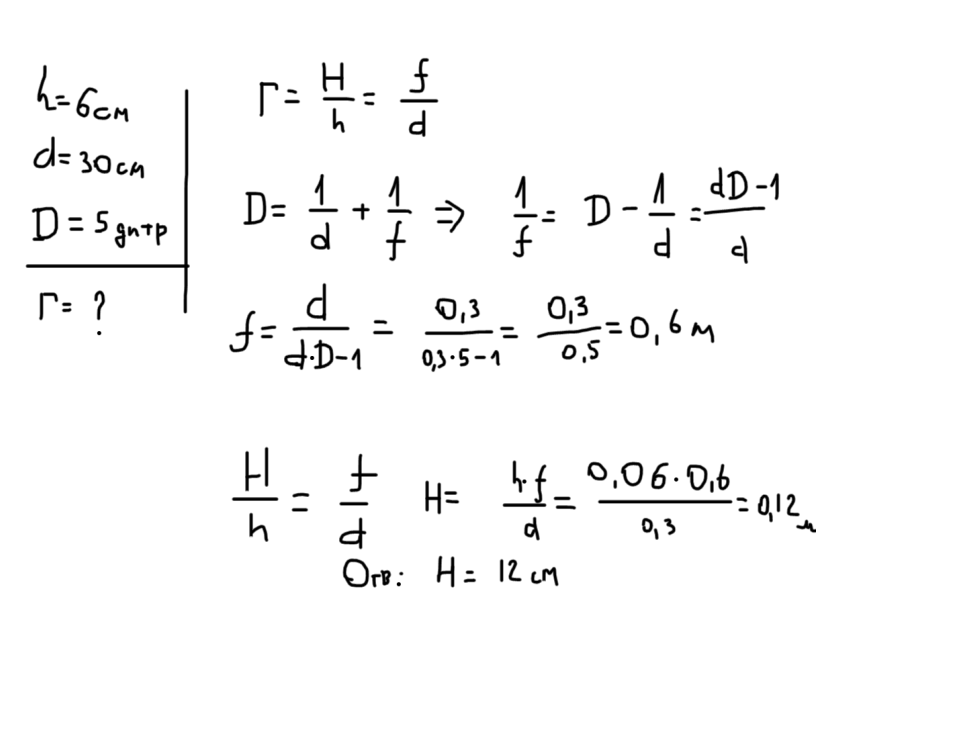 h=6см
d=30см
D=5дптр
Г= ?
Г= H/h = f/d
D= 1/d + 1/f ⇒ 1/f = D - 1/d = dD-1/d
f= d/d·D-1 = 0,3/0,3·5-1 = 0,3/0,5 = 0,6 м
H/h = f/d H= h·f/d = 0,06·0,6/0,3 = 0,12 м
Отв: H= 12 см